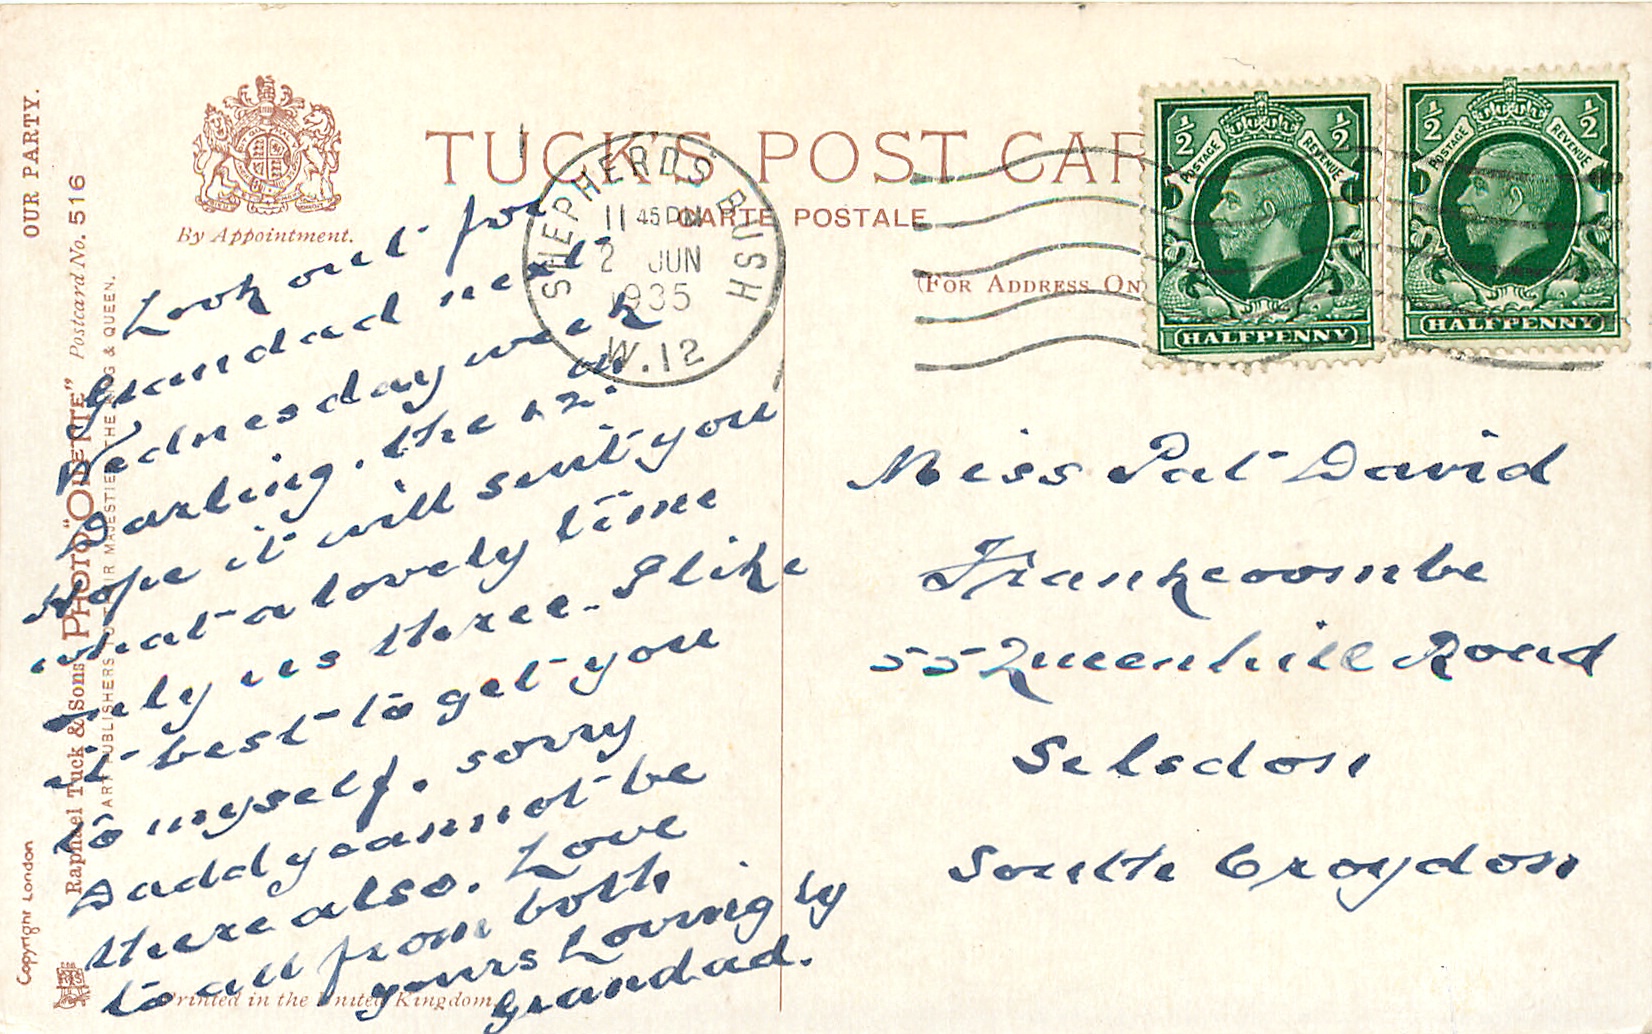 OUR PARTY.
By Appointment.
TUCK'S POST CAR
CARTE POSTALE
(FOR ADDRESS ON
SHEPHERDS BUSH
11 45 PM
2 JUN
1935
W.12
1/2 1/2
POSTAGE REVENUE
HALFPENNY
1/2 1/2
POSTAGE REVENUE
HALFPENNY
Look out for
Grandad next
Wednesday week
Darling. the 12.
Hope it will suit you
what a lovely time
only us three. I like
it best to get you
to myself. sorry
Daddy cannot be
there also. Love
to all from both
yours Lovingly
Grandad.
Miss Pat David
Frankcoombe
55 Queenhill Road
Selsdon
South Croydon
Raphael Tuck & Sons' PHOTO "OILETTE" Postcard No. 516
ART PUBLISHERS TO THEIR MAJESTIES THE KING & QUEEN.
Copyright London
Printed in the United Kingdom.